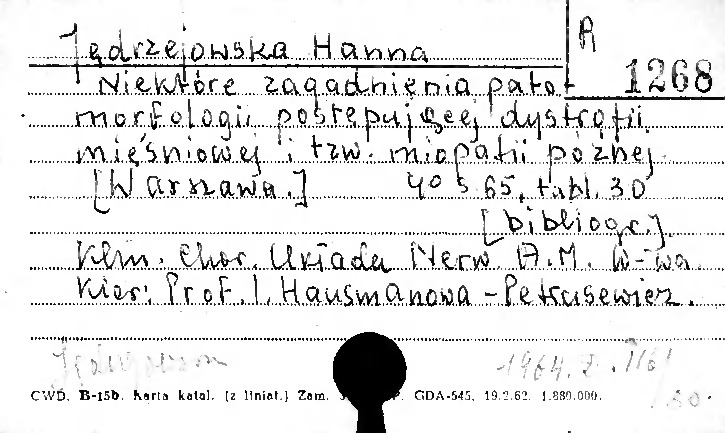 Jędrzejowska Hanna
R 1268
Niektóre zagadnienia pato-
morfologii postępującej dystrofii
mięśniowej i tzw. miopatii późnej
[Warszawa.] 40 s. 65, tabl. 30
[bibliogr.].
Klin. Chor. Układu Nerw. A.M. W-wa.
Kier: Prof. I. Hausmanowa-Petrusewicz.
1964.
CWD. B-15b. Karta katal. (z liniat.) Zam. GDA-545, 19.2.62. 1.880.000.